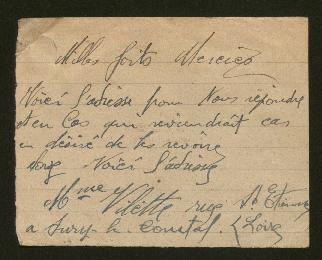 Milles foits Merciez
Voici l'adresse pour Nous répondre
et en Cas qui reviendrait cas
on désire de les revoire
Voici l'adresse
Mme Vilette rue St Etienne
a Sury-le-Comtal. (Loire